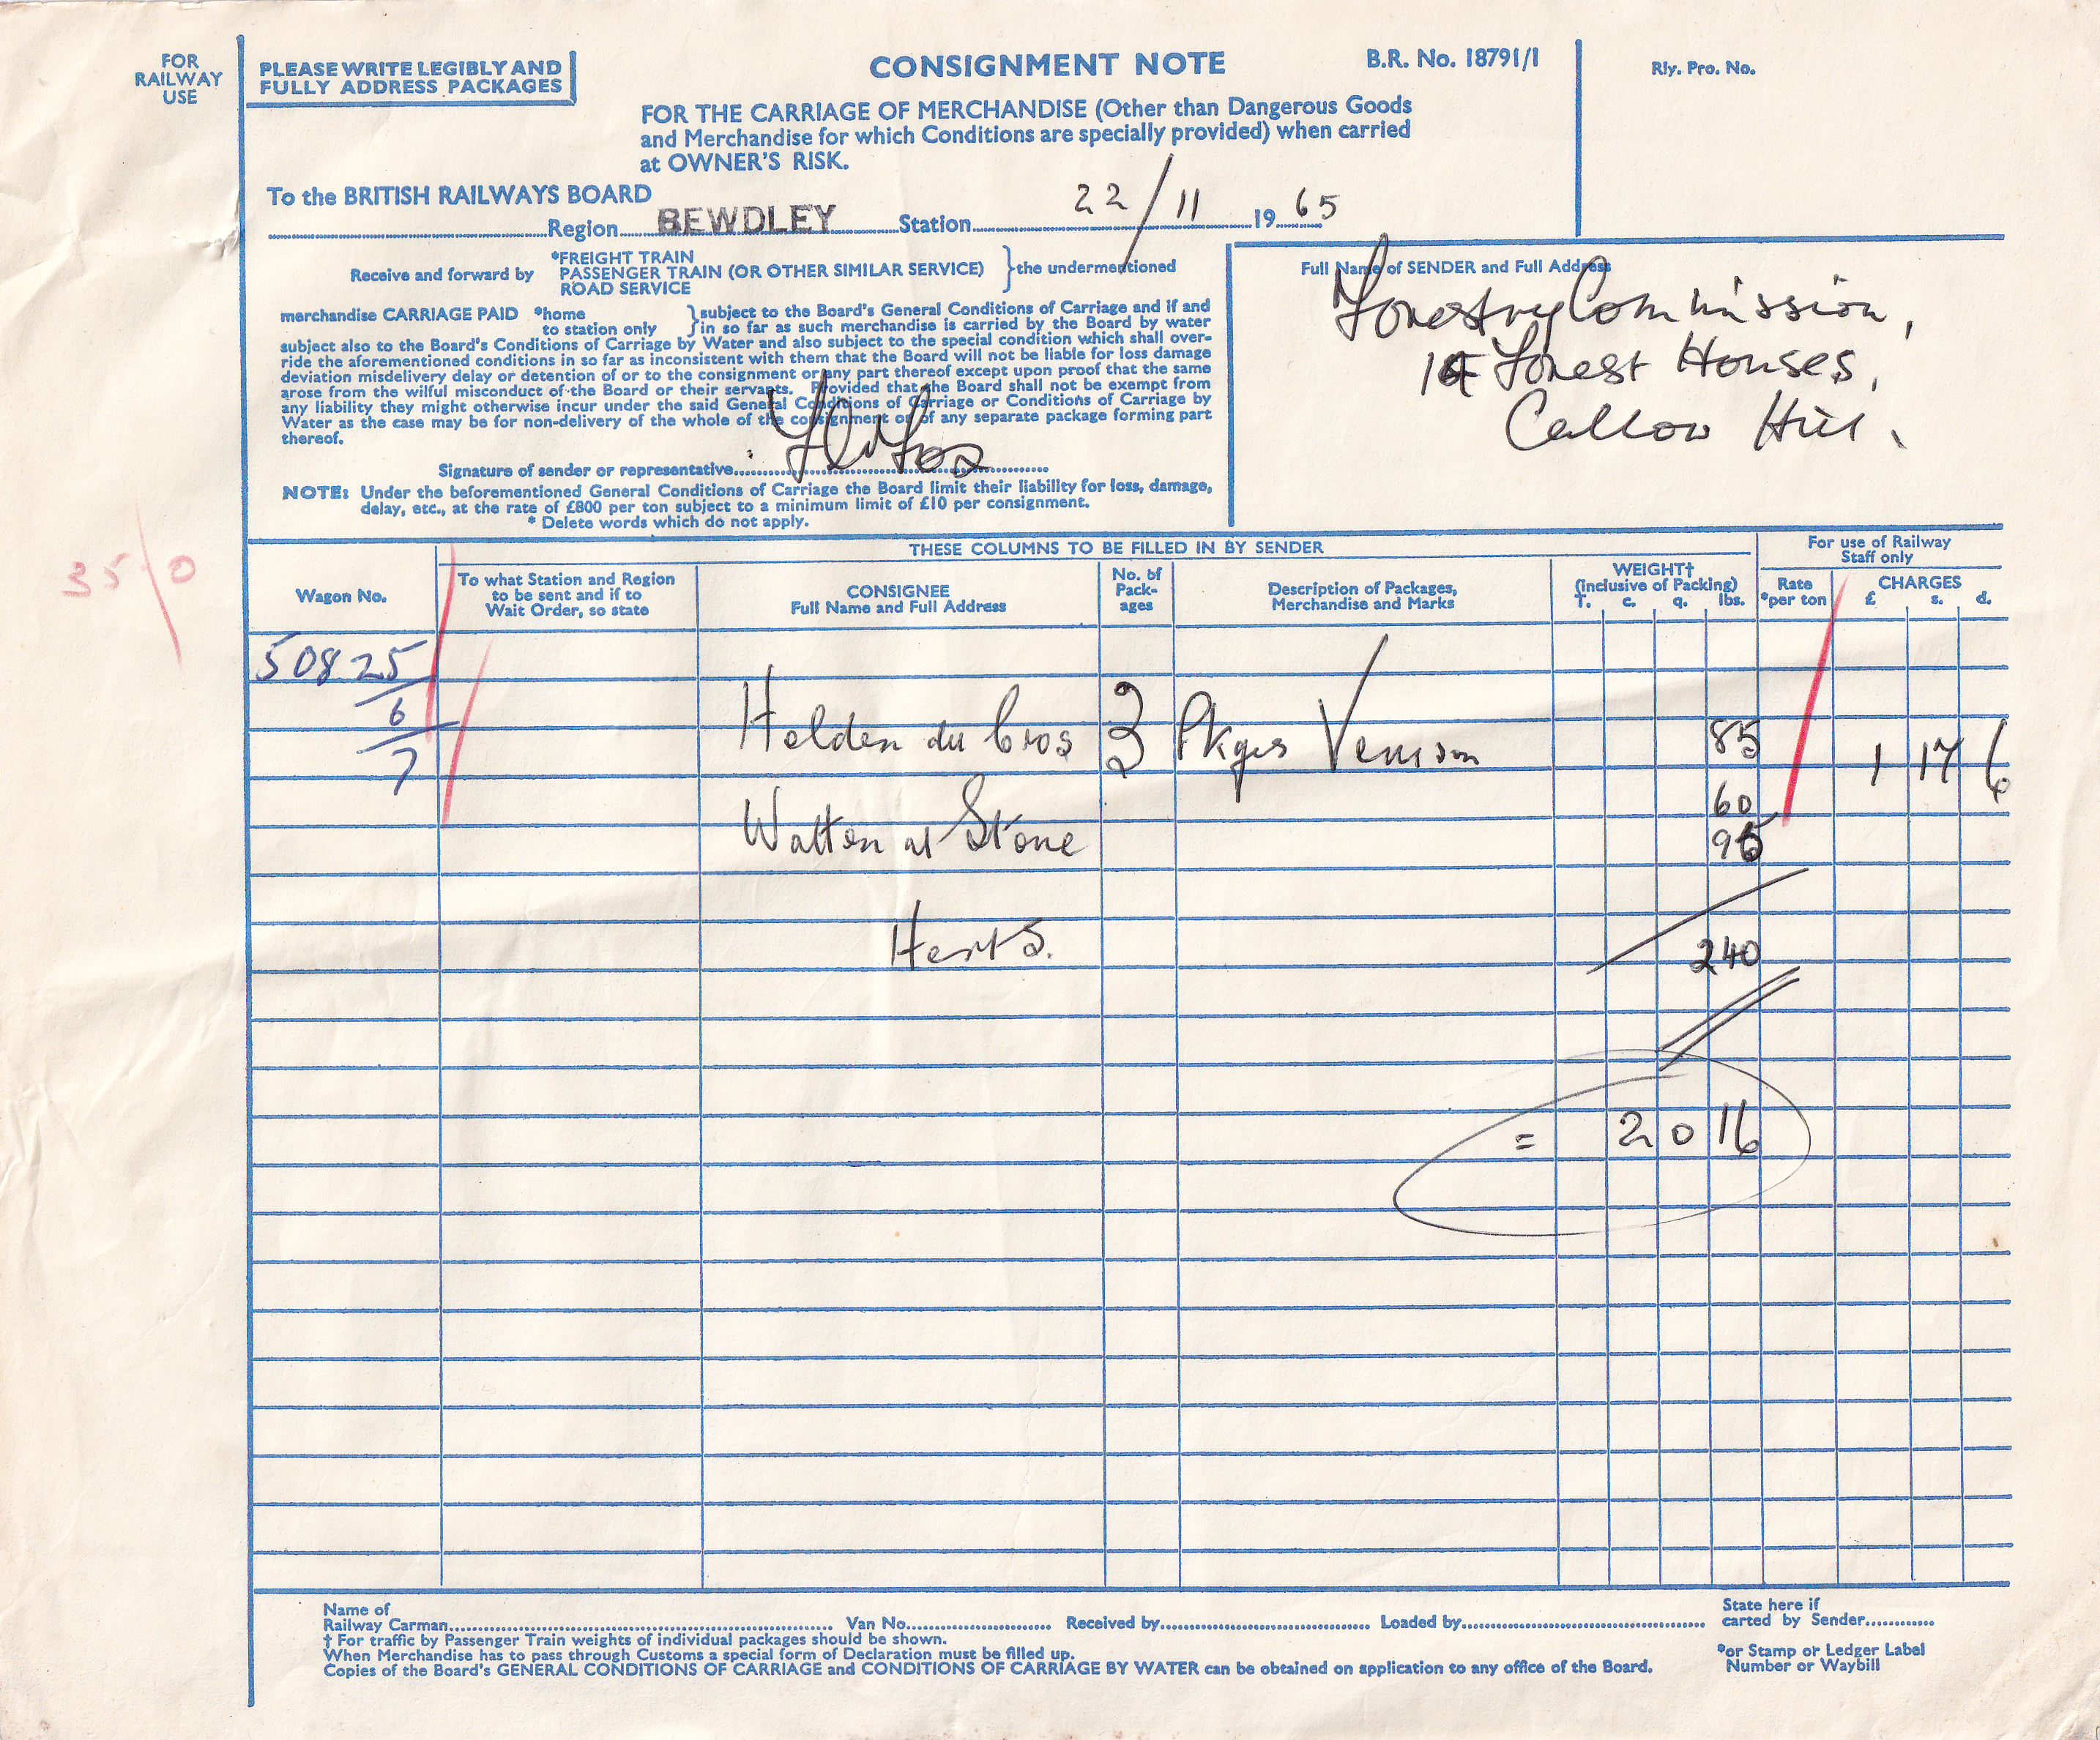 FOR
RAILWAY
USE
PLEASE WRITE LEGIBLY AND
FULLY ADDRESS PACKAGES
CONSIGNMENT NOTE
B.R. No. 18791/1
Rly. Pro. No.
FOR THE CARRIAGE OF MERCHANDISE (Other than Dangerous Goods
and Merchandise for which Conditions are specially provided) when carried
at OWNER'S RISK.
To the BRITISH RAILWAYS BOARD
Region BEWDLEY Station 22/11 19 65
Receive and forward by
*FREIGHT TRAIN
PASSENGER TRAIN (OR OTHER SIMILAR SERVICE)
ROAD SERVICE
the undermentioned
merchandise CARRIAGE PAID *home
to station only
subject to the Board's General Conditions of Carriage and if and
in so far as such merchandise is carried by the Board by water
subject also to the Board's Conditions of Carriage by Water and also subject to the special condition which shall over-
ride the aforementioned conditions in so far as inconsistent with them that the Board will not be liable for loss damage
deviation misdelivery delay or detention of or to the consignment or any part thereof except upon proof that the same
arose from the wilful misconduct of the Board or their servants. Provided that the Board shall not be exempt from
any liability they might otherwise incur under the said General Conditions of Carriage or Conditions of Carriage by
Water as the case may be for non-delivery of the whole of the consignment or of any separate package forming part
thereof.
Signature of sender or representative
NOTE: Under the beforementioned General Conditions of Carriage the Board limit their liability for loss, damage,
delay, etc., at the rate of £800 per ton subject to a minimum limit of £10 per consignment.
* Delete words which do not apply.
Full Name of SENDER and Full Address
Forestry Commission,
Forest Houses,
Callow Hill.
35/0
THESE COLUMNS TO BE FILLED IN BY SENDER
For use of Railway
Staff only
Wagon No.
To what Station and Region
to be sent and if to
Wait Order, so state
CONSIGNEE
Full Name and Full Address
No. of
Pack-
ages
Description of Packages,
Merchandise and Marks
WEIGHT†
(inclusive of Packing)
T. c. q. lbs.
Rate
*per ton
CHARGES
£ s. d.
50825
6
7
Holden du Cros 3 Pkges Venison 85 1 17 6
60
Watton at Stone 95
Herts. 240
= 2 0 16
Name of
Railway Carman Van No. Received by Loaded by
State here if
carted by Sender
† For traffic by Passenger Train weights of individual packages should be shown.
When Merchandise has to pass through Customs a special form of Declaration must be filled up.
Copies of the Board's GENERAL CONDITIONS OF CARRIAGE and CONDITIONS OF CARRIAGE BY WATER can be obtained on application to any office of the Board.
*or Stamp or Ledger Label
Number or Waybill